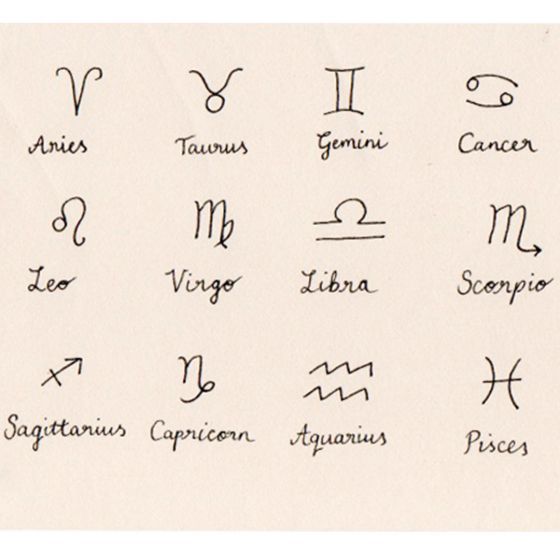 Aries Taurus Gemini Cancer
Leo Virgo Libra Scorpio
Sagittarius Capricorn Aquarius Pisces